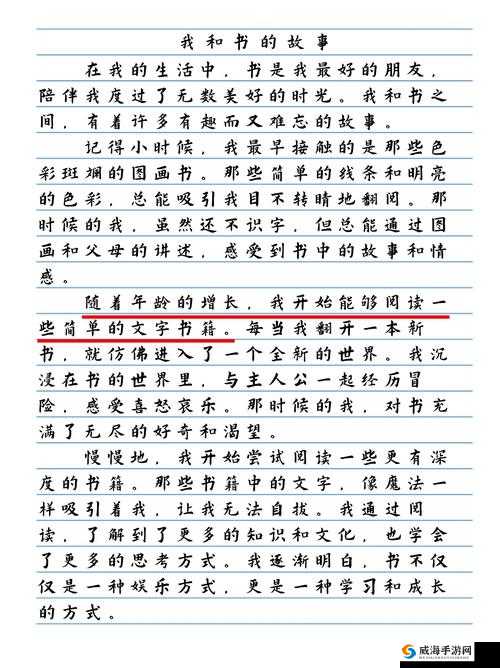 我和书的故事
在我的生活中，书是我最好的朋友，
陪伴我度过了无数美好的时光。我和书之
间，有着许多有趣而又难忘的故事。
记得小时候，我最早接触的是那些色
彩斑斓的图画书。那些简单的线条和明亮
的色彩，总能吸引我目不转睛地翻阅。那
时候的我，虽然还不识字，但总能通过图
画和父母的讲述，感受到书中的故事和情
感。
随着年龄的增长，我开始能够阅读一
些简单的文字书籍。每当我翻开一本新
书，就仿佛进入了一个全新的世界。我沉
浸在书的世界里，与主人公一起经历冒
险，感受喜怒哀乐。那时候的我，对书充
满了无尽的好奇和渴望。
慢慢地，我开始尝试阅读一些更有深
度的书籍。那些书籍中的文字，像魔法一
样吸引着我，让我无法自拔。我通过阅
读，了解到了更多的知识和文化，也学会
了更多的思考方式。我逐渐明白，书不仅
仅是一种娱乐方式，更是一种学习和成长
的方式。
威海手游网